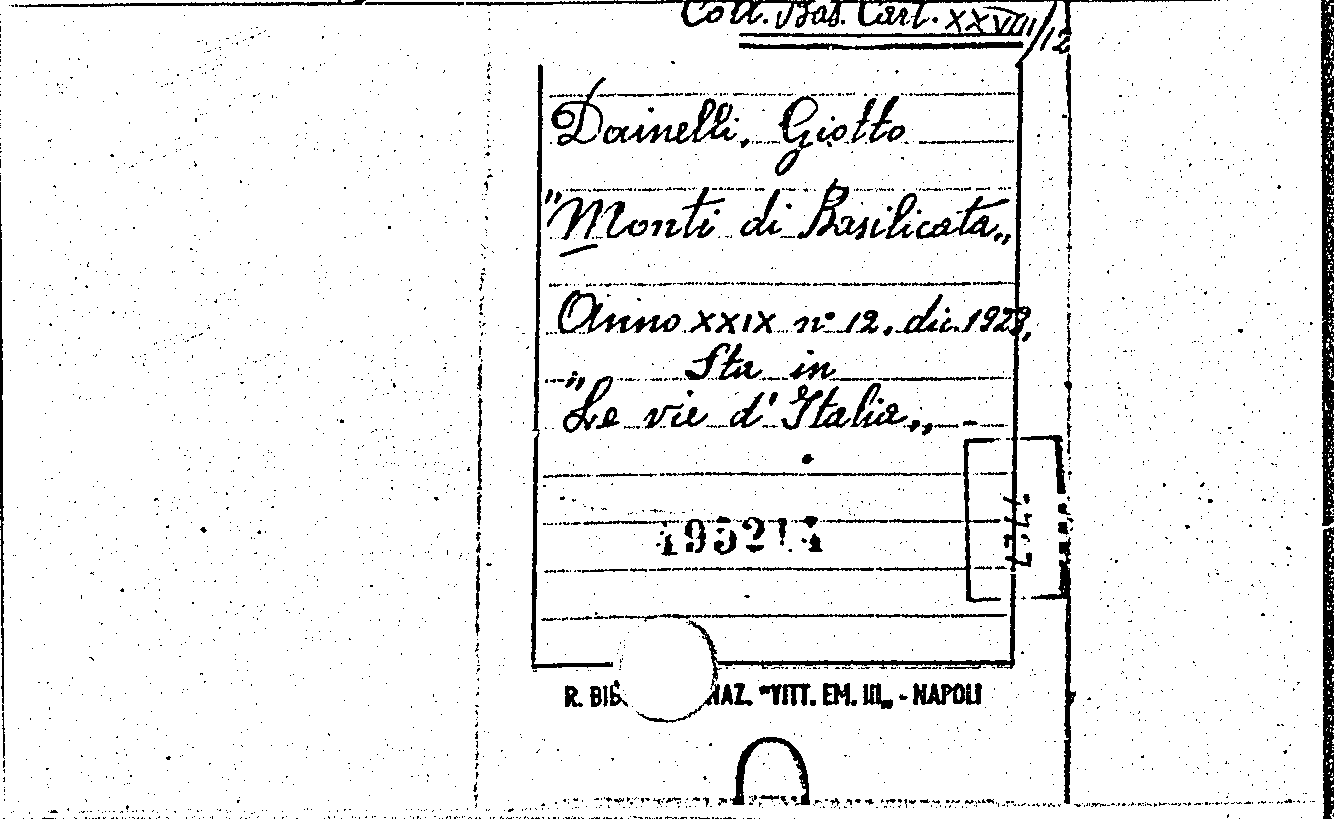 Coll. Bas. Cart. XXVIII/12
Dainelli, Giotto
"Monti di Basilicata„
Anno XXIX n° 12. dic. 1923,
Sta in
"Le vie d'Italia„ -
495214
R. BIB NAZ. "VITT. EM. III„ - NAPOLI